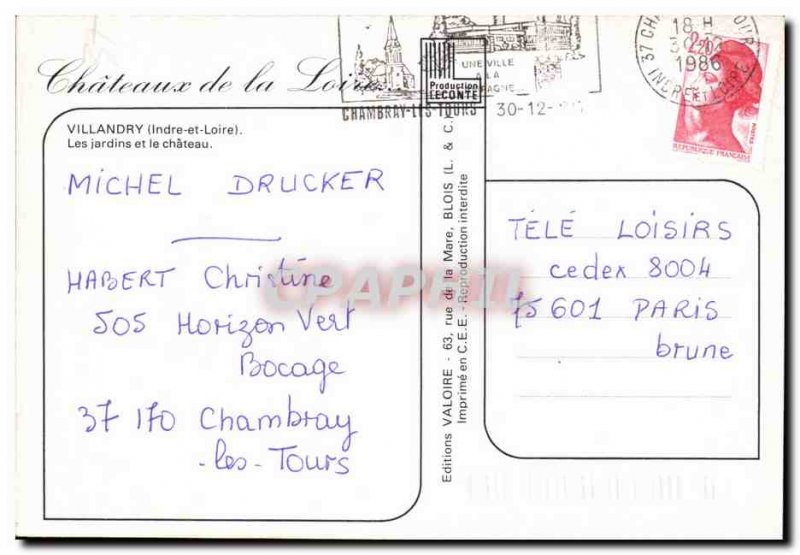 Châteaux de la Loire
VILLANDRY (Indre-et-Loire).
Les jardins et le château.
MICHEL DRUCKER
HABERT Christine
505 Horizon Vert
Bocage
37 170 Chambray
-les-Tours
Production
LECONTE
UNE VILLE
A LA
CHAMBRAY-LES-TOURS
30-12-
18 H
1986
INDRE ET LOIRE
2,20
POSTES
REPUBLIQUE FRANÇAISE
Editions VALOIRE - 63, rue de la Mare, BLOIS (L. & C.
Imprimé en C.E.E. - Reproduction interdite
TÉLÉ LOISIRS
cedex 8004
75 601 PARIS
brune
CPAPHIL